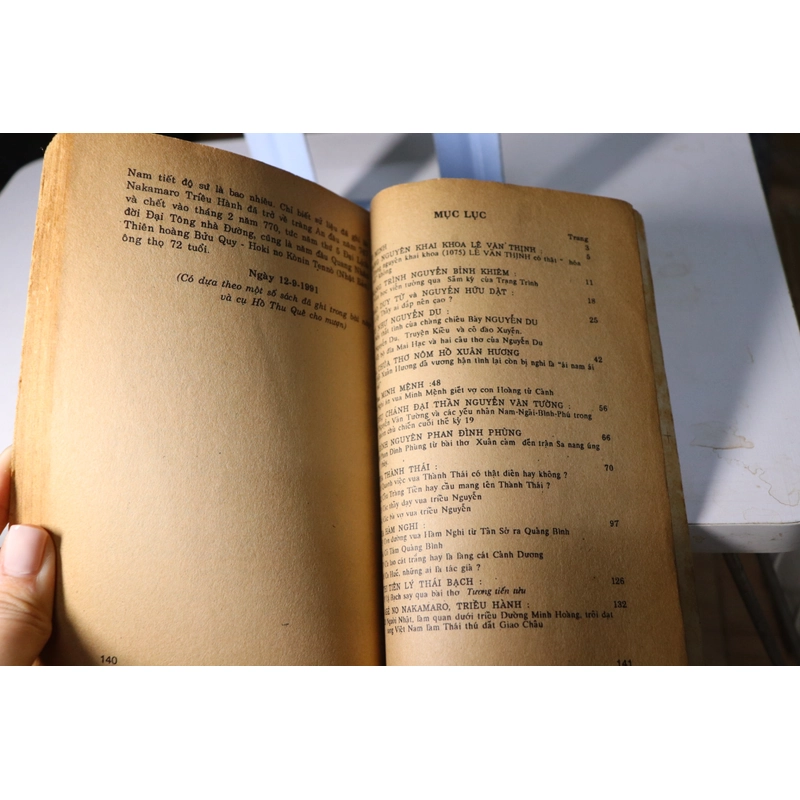 Nam tiết độ sứ là bao nhiêu. Chỉ biết sử liệu đã ghi
Nakamaro Triều Hành đã trở về tràng An đầu năm
và chết vào tháng 2 năm 770, tức năm thứ 5 Đại
đời Đại Tông nhà Đường, cũng là năm đầu Quang
Thiên hoàng Bửu Quy - Hoki no Kônin Tenno (Nhật
ông thọ 72 tuổi.
Ngày 12-9-1991
(Có dựa theo một số sách đã ghi trong bài
và cụ Hồ Thu Quê cho mượn)
140
MỤC LỤC
Trang
3
NGUYÊN KHAI KHOA LÊ VĂN THỊNH :
nguyên khai khoa (1075) LÊ VĂN THỊNH có thật " hóa
5
không
TRÌNH NGUYỄN BỈNH KHIÊM
học viên tưởng qua Sấm ký của Trạng Trình
11
DUY TỪ và NGUYỄN HỮU DẬT :
Thầy ai đắp nên cao ?
18
NGUYỄN DU :
tình của chàng chiêu Bảy NGUYỄN DU
25
Du, Truyện Kiều và cô đào Xuyến.
địa Mai Hạc và hai câu thơ của Nguyễn Du
THƠ NÔM HỒ XUÂN HƯƠNG
42
Xuân Hương đã vương hận tình lại còn bị nghi là "ái nam ái
MINH MỆNH :48
vua Minh Mệnh giết vợ con Hoàng tử Cảnh
CHÁNH ĐẠI THẦN NGUYỄN VĂN TƯỜNG :
56
Văn Tường và các yếu nhân Nam-Ngãi-Bình-Phú trong
chủ chiến cuối thế kỷ 19
NGUYÊN PHAN ĐÌNH PHÙNG
66
Đình Phùng từ bài thơ Xuân cảm đến trận Sa nang úng
THÀNH THÁI :
70
việc vua Thành Thái có thật điên hay không ?
Tràng Tiền hay cầu mang tên Thành Thái ?
thầy dạy vua triều Nguyễn
vợ vua triều Nguyễn
HÀM NGHI :
97
đường vua Hàm Nghi từ Tân Sở ra Quảng Bình
Quảng Bình
cát trắng hay là lăng cát Cảnh Dương
Huế, những ai là tác giả ?
TIÊN LÝ THÁI BẠCH :
126
Bạch say qua bài thơ Tương tiến tửu
NO NAKAMARO, TRIỀU HÀNH :
132
Người Nhật, làm quan dưới triều Đường Minh Hoàng, trôi dạt
Việt Nam làm Thái thú đất Giao Châu
141